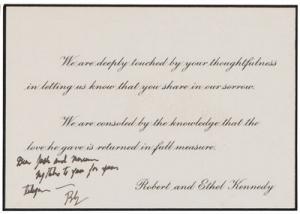 We are deeply touched by your thoughtfulness
in letting us know that you share in our sorrow.
We are consoled by the knowledge that the
love he gave is returned in full measure.
Robert and Ethel Kennedy
Dear and
my thanks to you for your